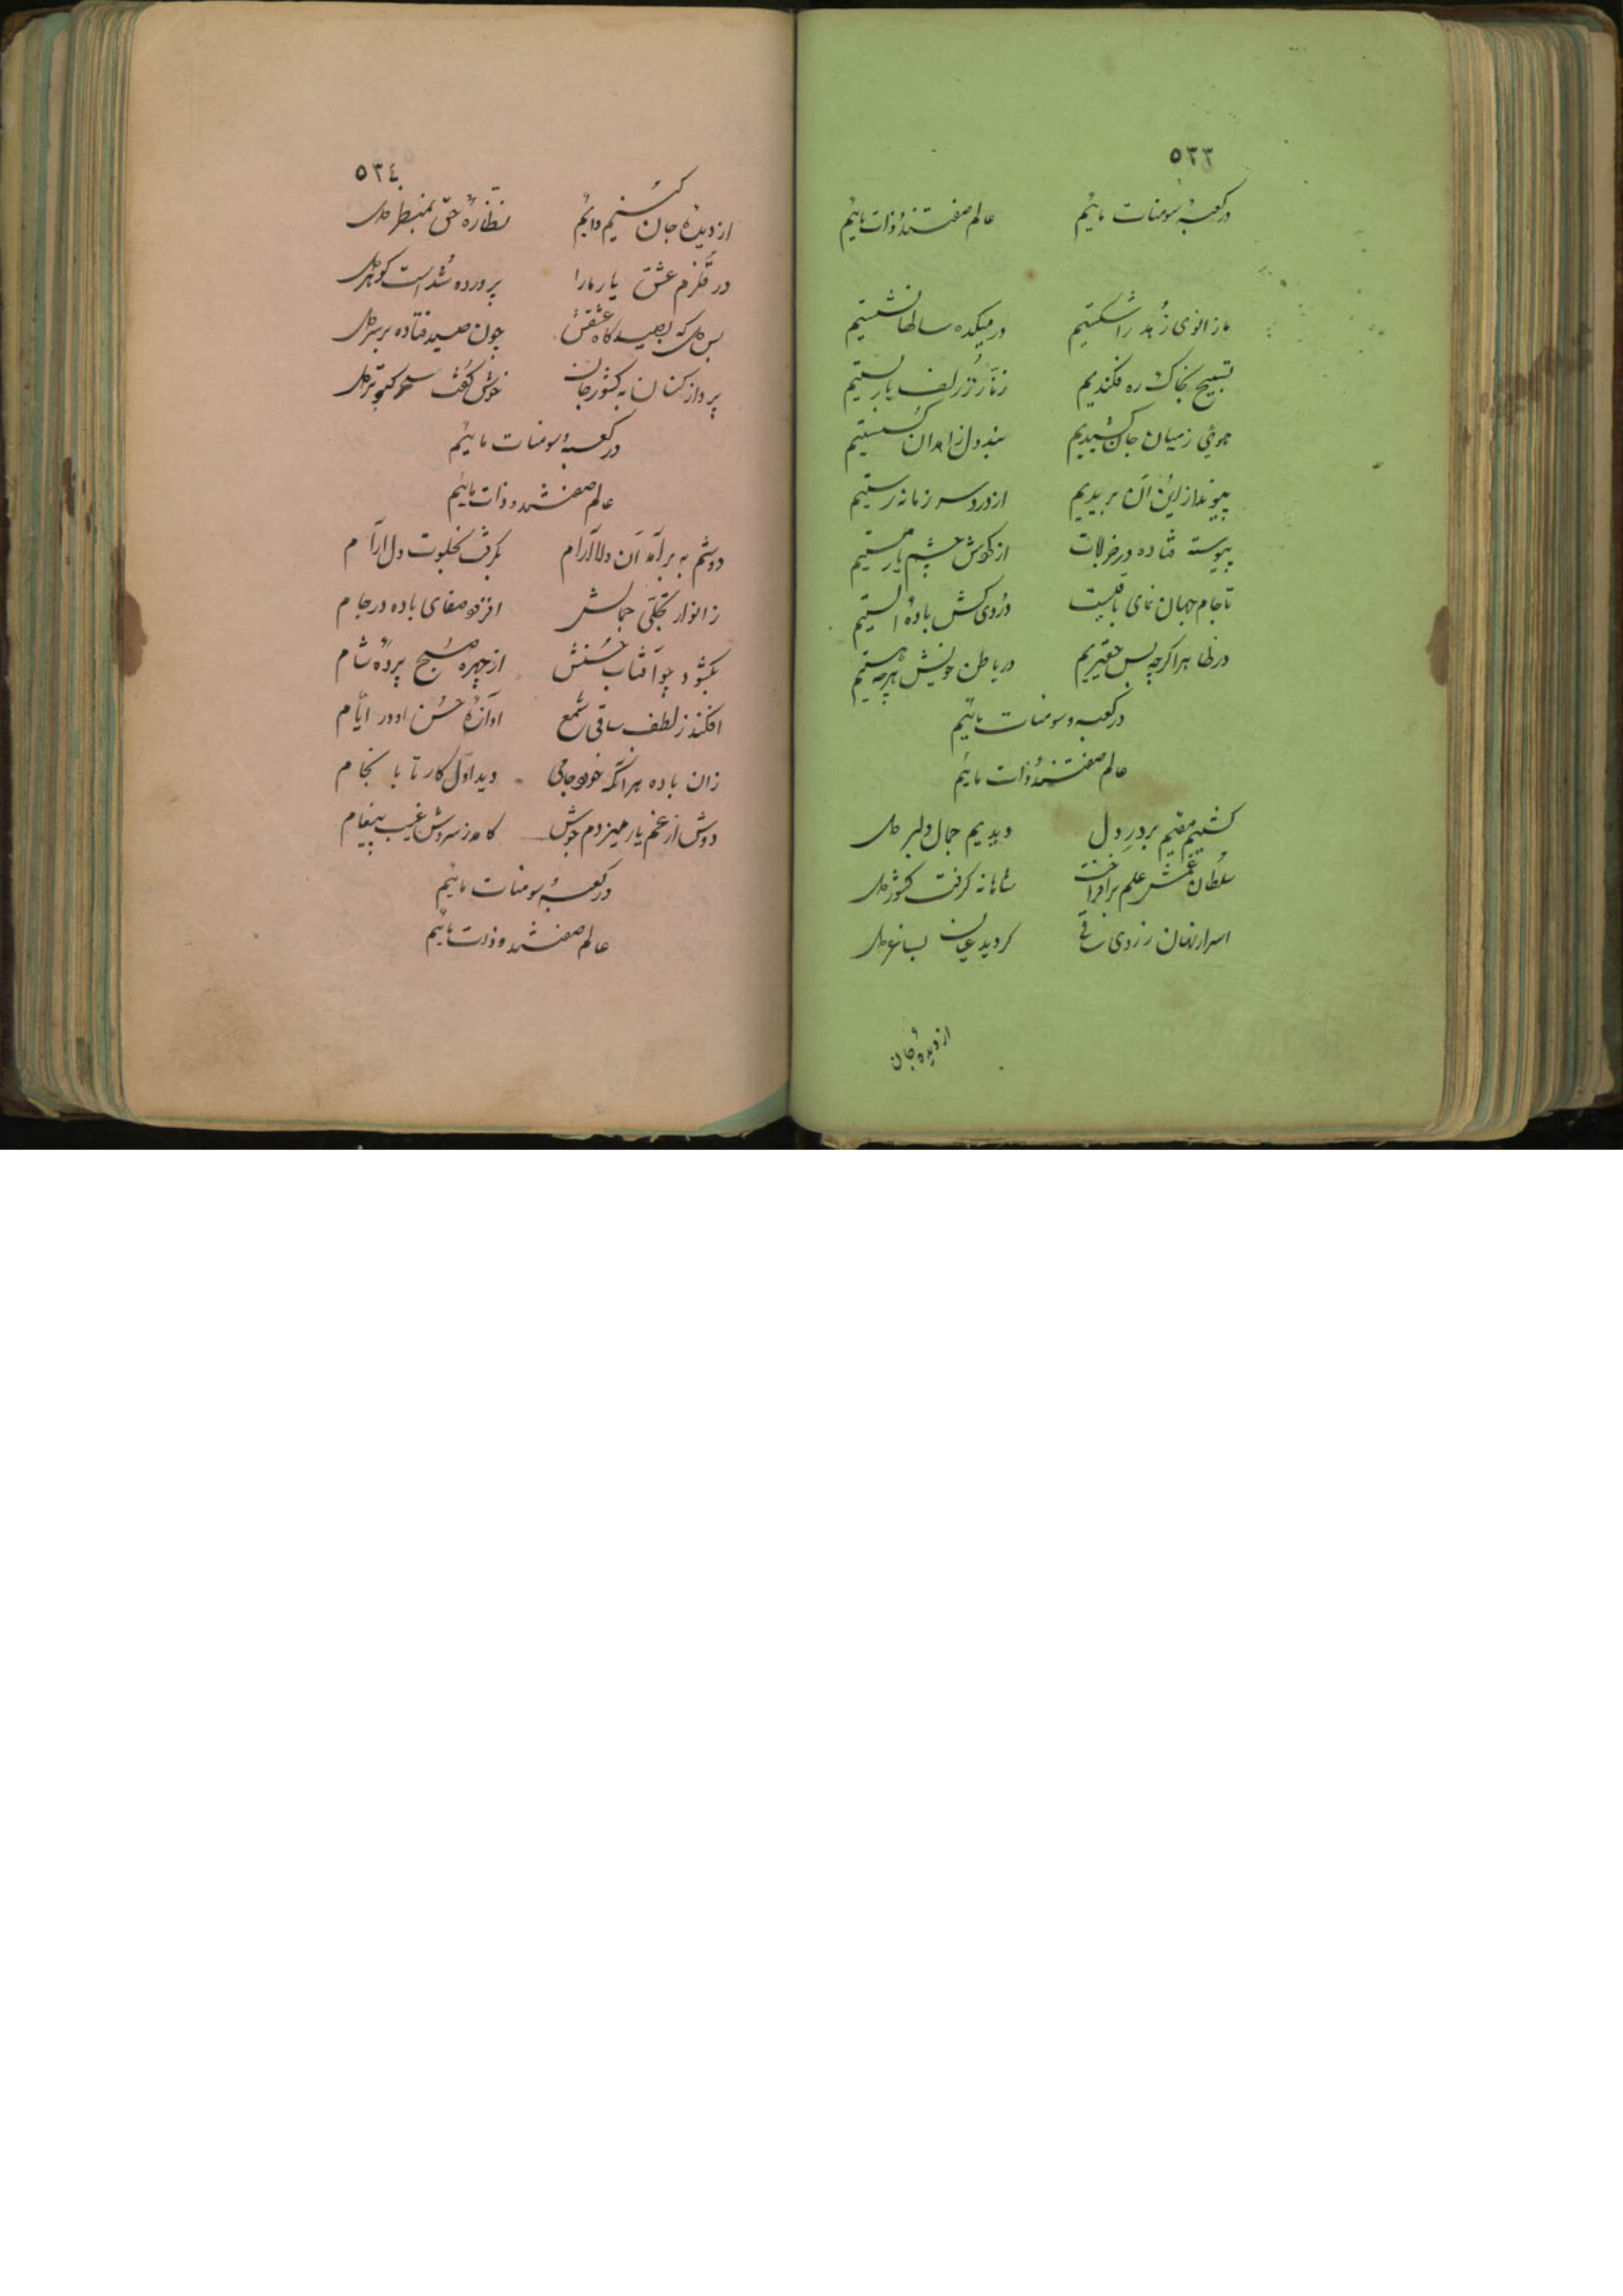 ٥٢٣
در کعبهٔ سومنات مائیم عالم صفتند و ذات مائیم
ما زانوی زُهد را شکستیم در میکده سالها نشستیم
تسبیح بخاک ره فکندیم زنّار ز زلف یار بستیم
موئی ز میان جان کشیدیم بند دل زاهدان گسستیم
پیوند از این و آن بریدیم از درد سر زمانه رستیم
پیوسته فتاده در خرابات از گوش چشم یار مستیم
تا جام جهان نمای باقیست دُردی کش بادهٔ الستیم
در ظاهر اگرچه بس حقیریم در باطن خویش هرچه هستیم
در کعبه و سومنات مائیم
عالم صفتند و ذات مائیم
گشتیم مقیم بر درِ دل دیدیم جمال دلبر دل
سُلطان غمش علم برافراخت شاهانه گرفت کشور دل
اسرار نهان ز روی ساقی گردید عیان بساغر دل
از دیدهٔ جان
٥٢٤
از دیدهٔ جان کُنیم دایم نظّارهٔ حقّ بمنظر دل
در قُلزم عشق یار ما را پرورده شُداست گوهر دل
بس دل که بصیدگاه عشقش چون صید فتاده بر سر دل
پرواز کنان به کشور جان خوش گفت سحر کبوتر دل
در کعبه و سومنات مائیم
عالم صفتند و ذات مائیم
دوشم به بر آمد آن دلاآرام بگرفت بخلوت دل آرام
ز انوار تجلّی جمالش افزود صفای باده در جام
بگشود چو آفتاب حُسنش از چهره صُبح پردهٔ شام
افکند ز لطف ساقی شمع آوازهٔ حُسن او در ایّام
زان باده هر آنکه خورد جامی دید اوّل کار تا بانجام
دوش از غم یار میزدم جوش کامد ز سروش غیب پیغام
در کعبه و سومنات مائیم
عالم صفتند و ذات مائیم